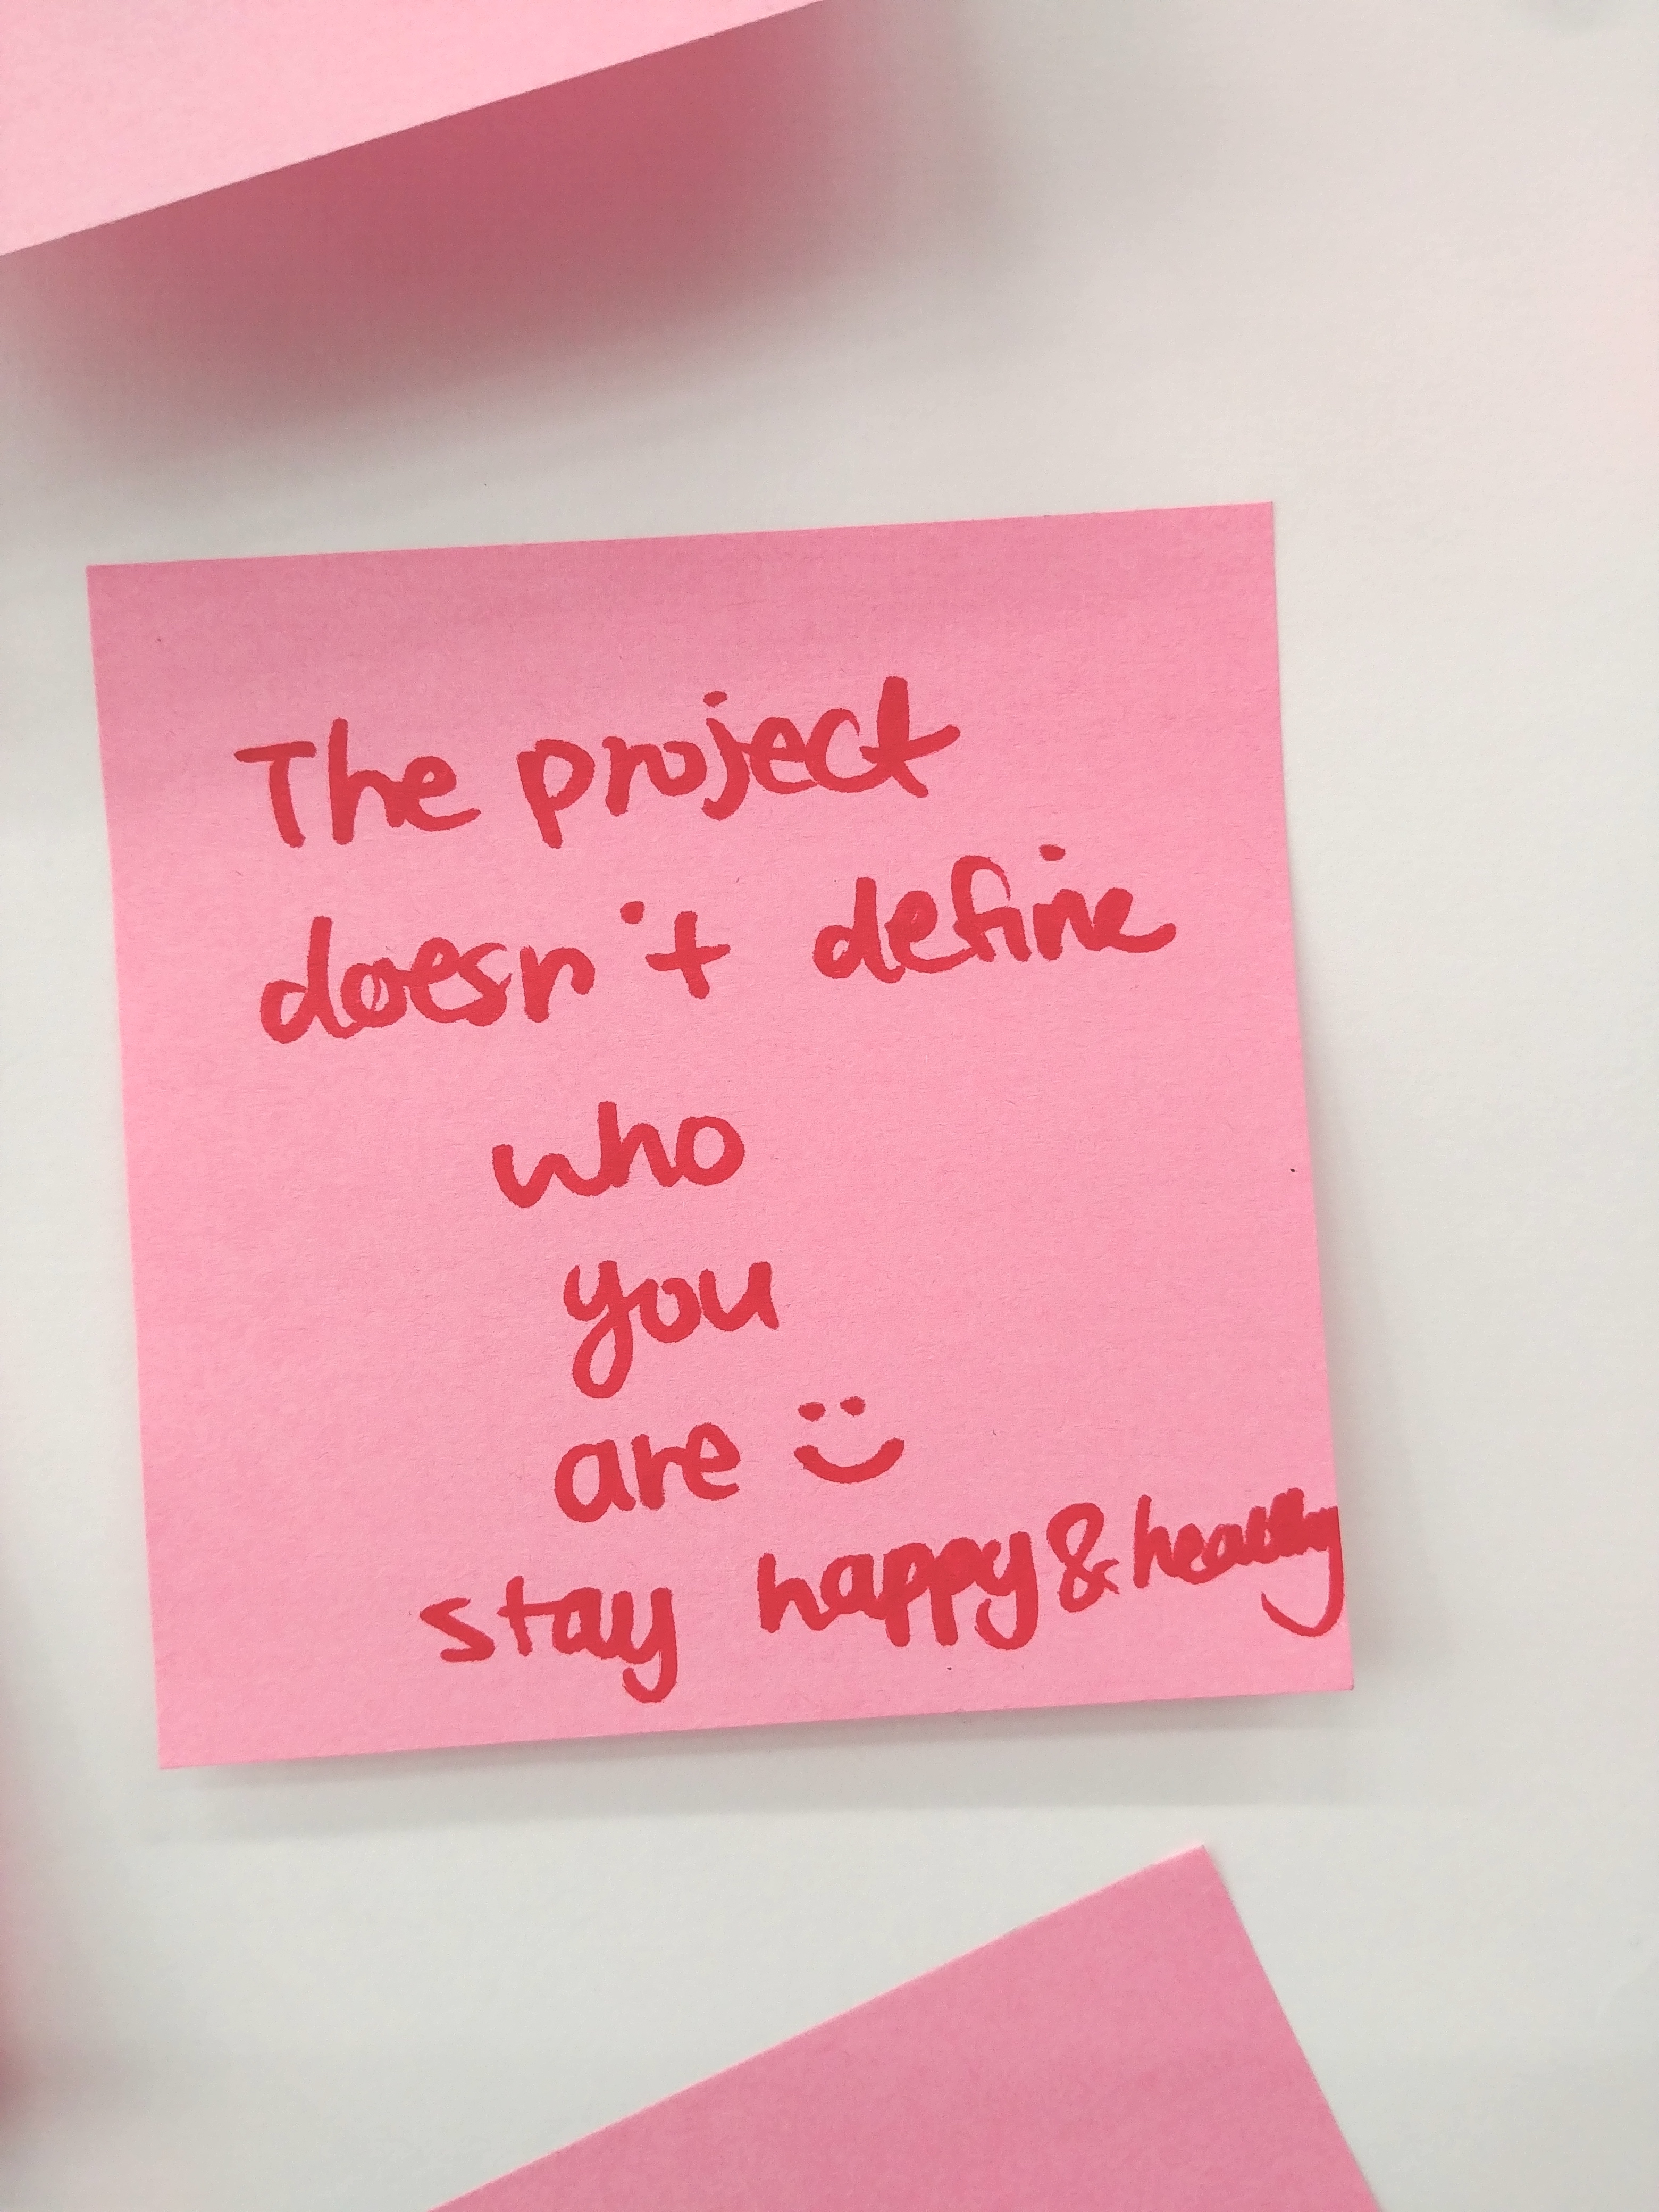 The project
doesn't define
who
you
are
stay happy & healthy